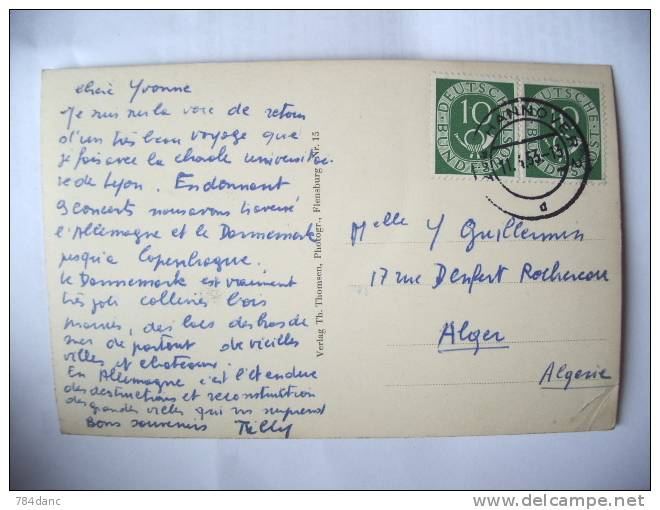 chère Yvonne
Je suis sur la voie de retour
d'un très beau voyage que
je fais avec la chorale universitai
re de Lyon. En donnant
9 concerts nous avons traversé
l'Allemagne et le Dannemark
jusqu'a Copenhague.
Le Dannemark est vraiment
très joli collines bois
prairies, des lacs des bras de
mer de partout de vieilles
villes et chateaux.
En Allemagne c'est l'étendue
des destructions et reconstruction
des grandes villes qui vs surprend
Bons souvenirs Tilly
Verlag Th. Thomsen, Photogr., Flensburg Nr. 15
DEUTSCHE BUNDESPOST
10
DEUTSCHE BUNDESPOST
HANNOVER
d
Melle Y Guillermin
17 rue Denfert Rochereau
Alger
Algérie
784danc
delcampe.net